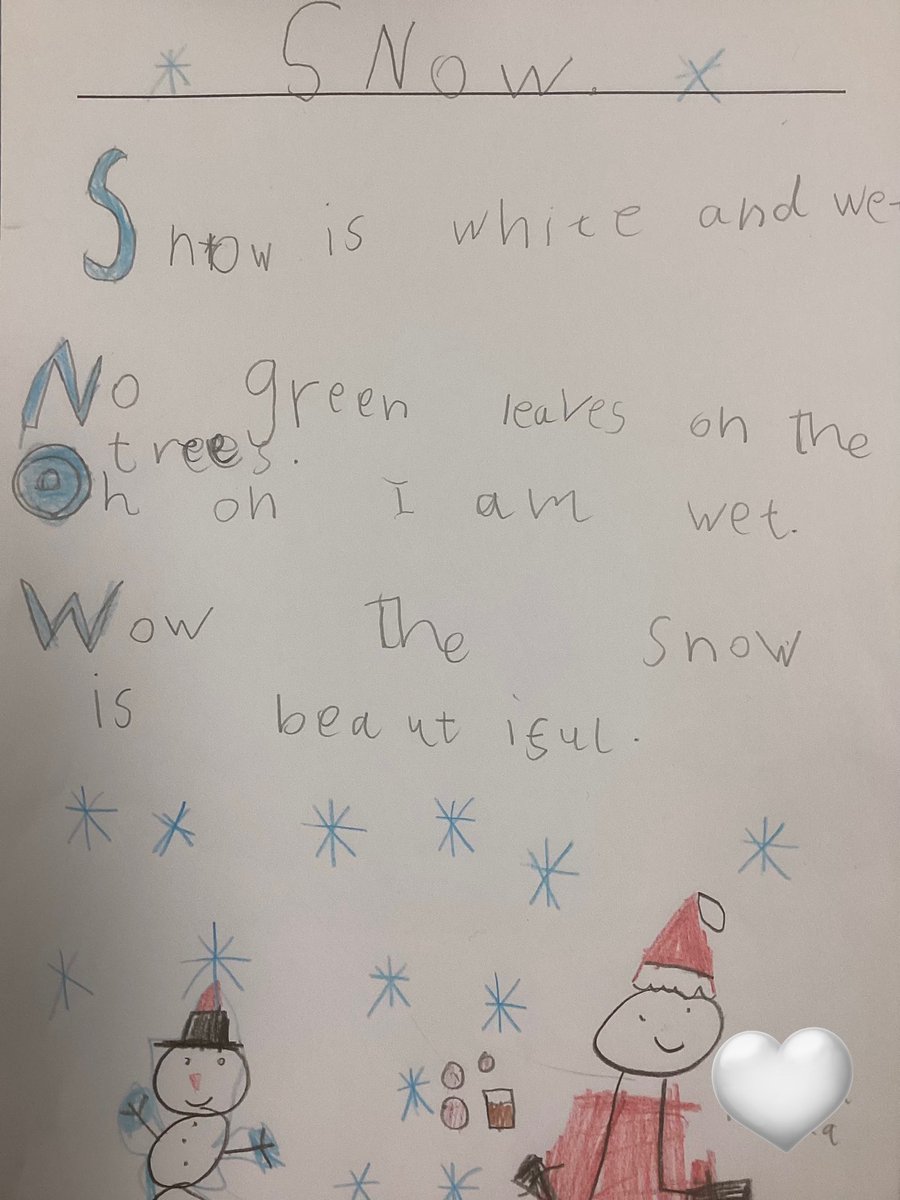 SNow.
Snow is white and we
No green leaves on the
trees.
Oh oh I am wet.
Wow the Snow
is beautiful.